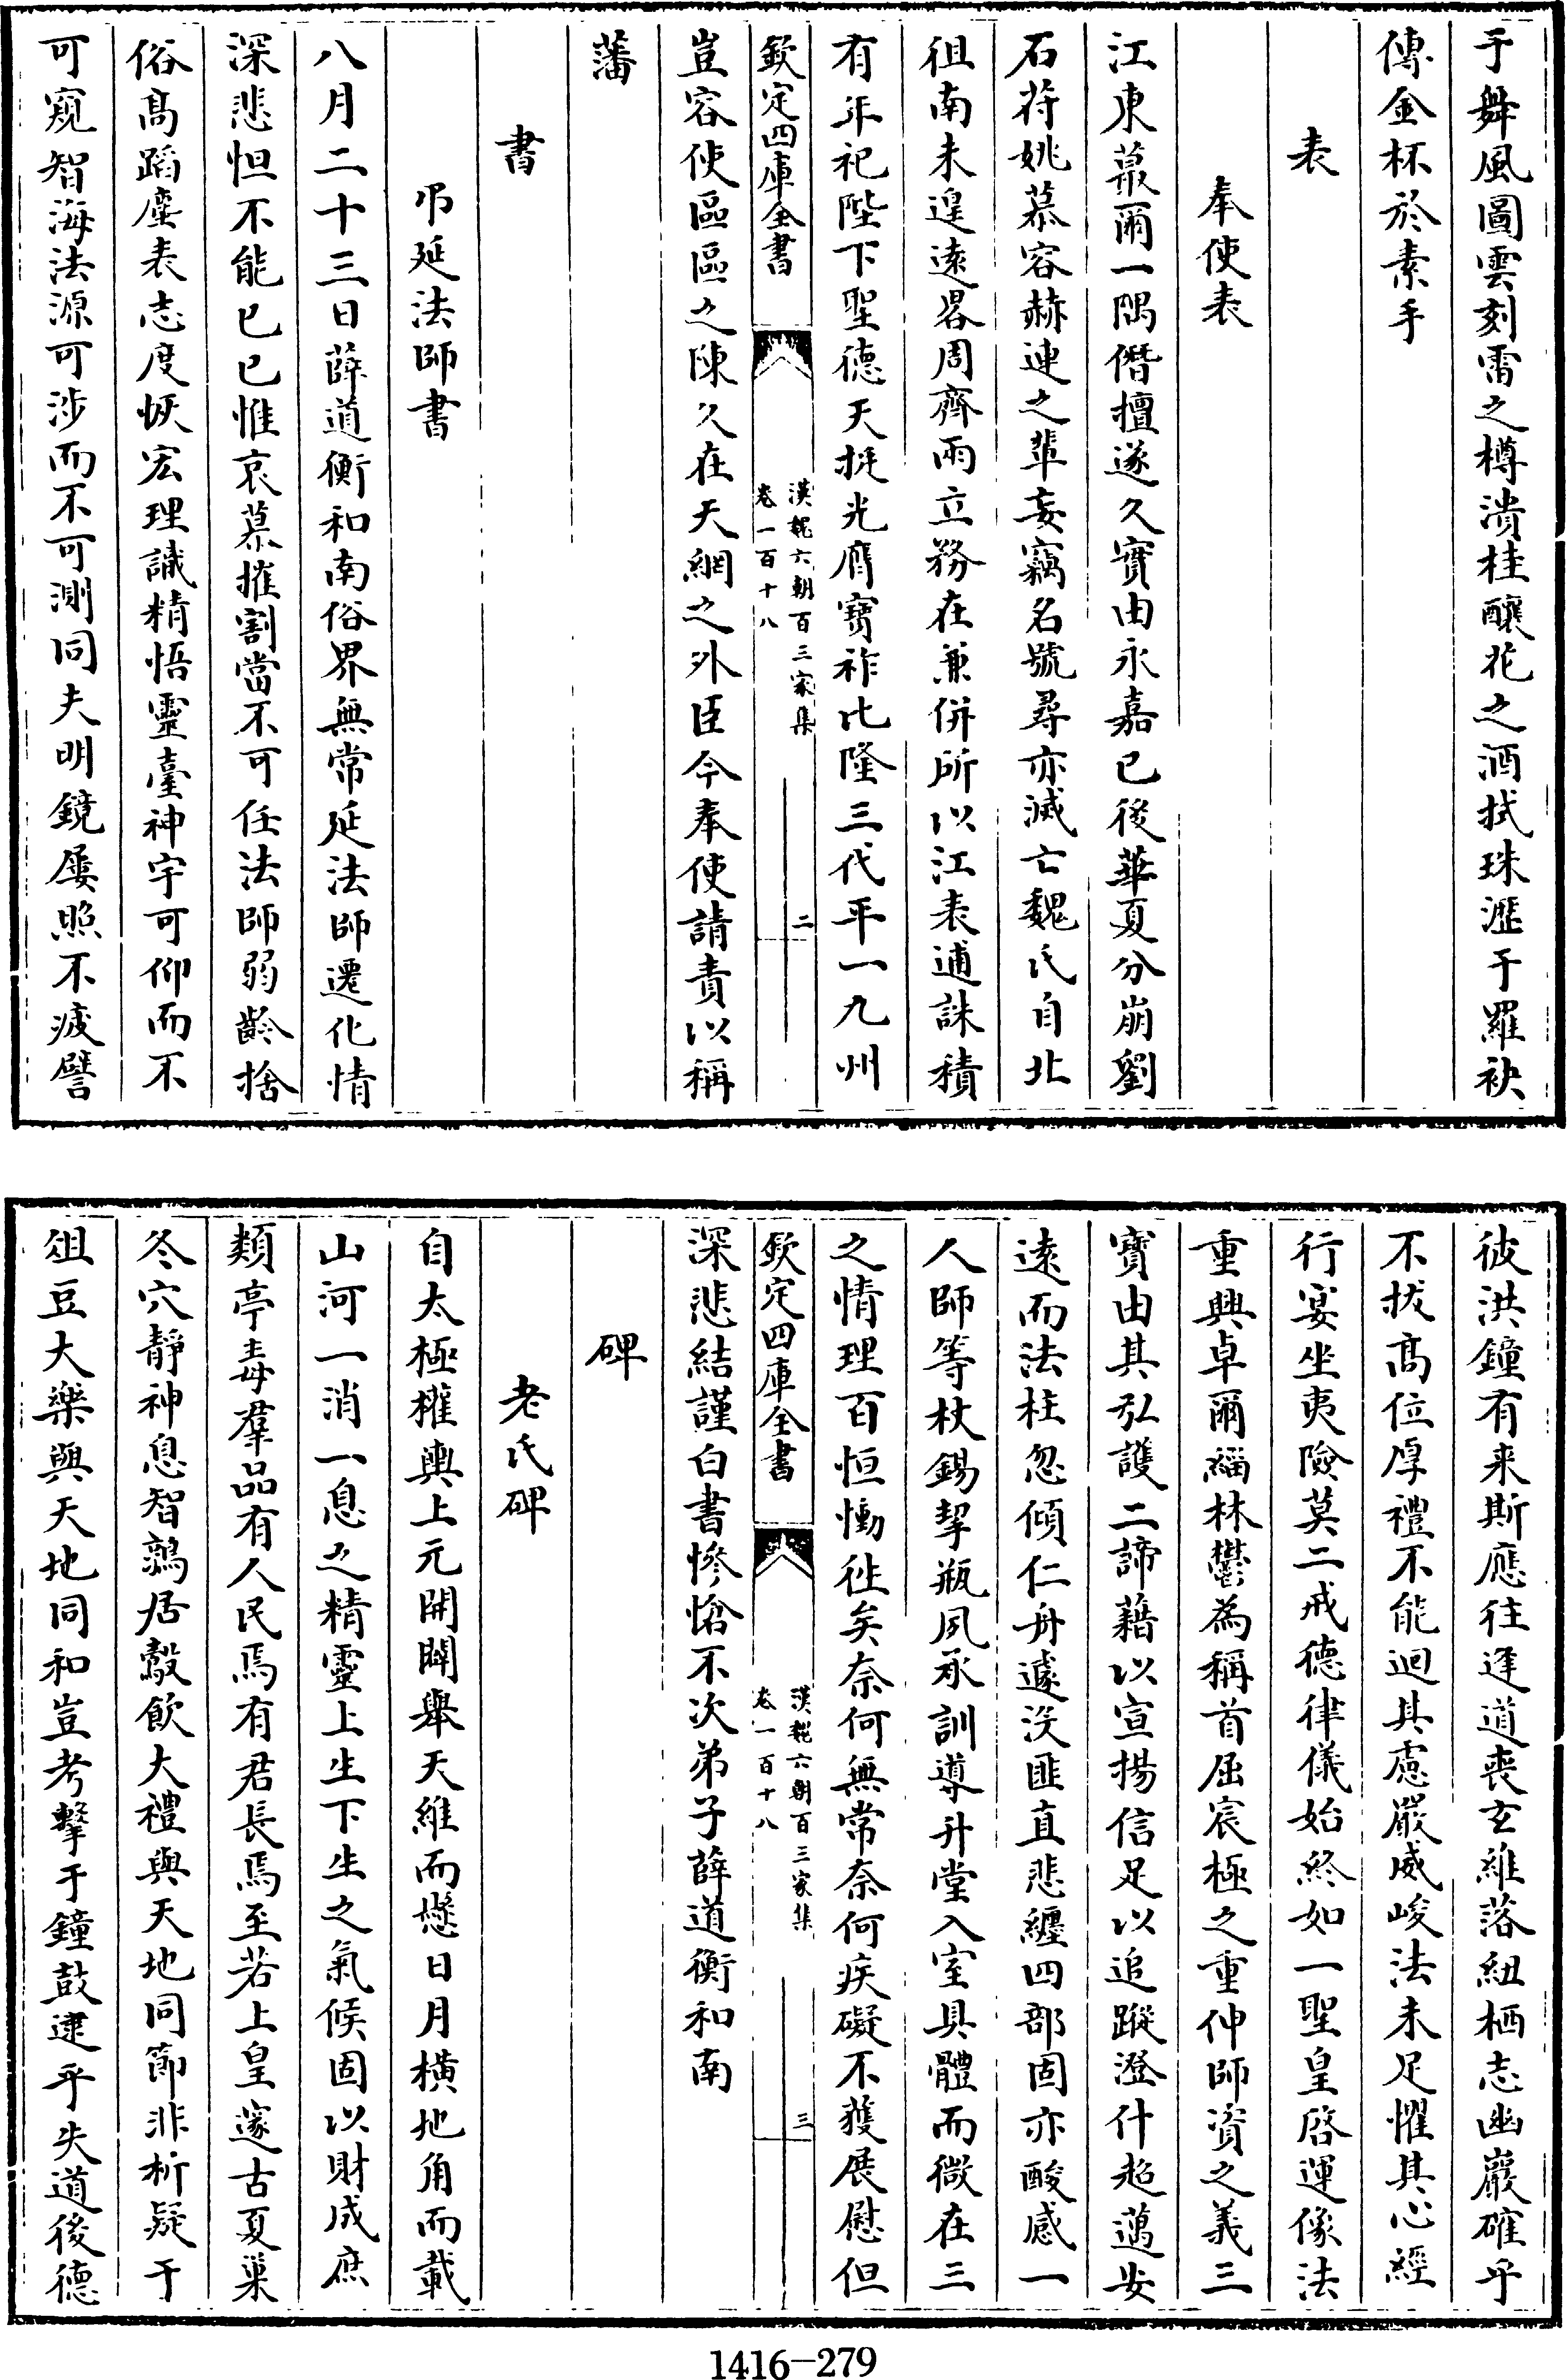 于舞風圖雲刻雷之樽漬桂釀花之酒拭珠瀝于羅袂
傳金杯於素手
表
奉使表
江東蕞爾一隅僭擅遂久實由永嘉已後華夏分崩劉
石苻姚慕容赫連之輩妄竊名號尋亦滅亡魏氏自北
徂南未遑遠畧周齊兩立務在兼併所以江表逋誅積
有年祀陛下聖德天挺光膺寶祚比隆三代平一九州
欽定四庫全書
漢魏六朝百三家集
卷一百十八
二
豈容使區區之陳久在天網之外臣今奉使請責以稱
藩
書
弔延法師書
八月二十三日薛道衡和南俗界無常延法師遷化情
深悲怛不能已已惟哀慕摧割當不可任法師弱齡捨
俗高蹈塵表志度恢宏理識精悟靈臺神宇可仰而不
可窺智海法源可涉而不可測同夫明鏡屢照不疲譬
彼洪鐘有来斯應往逢道喪玄維落紐栖志幽巖確乎
不拔高位厚禮不能迴其慮嚴威峻法未足懼其心經
行宴坐夷險莫二戒德律儀始終如一聖皇啓運像法
重興卓爾緇林鬱為稱首屈宸極之重伸師資之義三
寶由其弘護二諦藉以宣揚信足以追蹤澄什超邁安
遠而法柱忽傾仁舟遽没匪直悲纏四部固亦酸感一
人師等杖錫挈瓶夙承訓導升堂入室具體而微在三
之情理百恒慟徃矣奈何無常奈何疾礙不獲展慰但
欽定四庫全書
漢魏六朝百三家集
卷一百十八
三
深悲結謹白書慘愴不次弟子薛道衡和南
碑
老氏碑
自太極權輿上元開闢舉天維而懸日月横地角而載
山河一消一息之精靈上生下生之氣候固以財成庶
類亭毒羣品有人民焉有君長焉至若上皇邃古夏巢
冬穴靜神息智鶉居鷇飲大禮與天地同節非析疑于
俎豆大樂與天地同和豈考擊于鐘鼓逮乎失道後德
1416—279